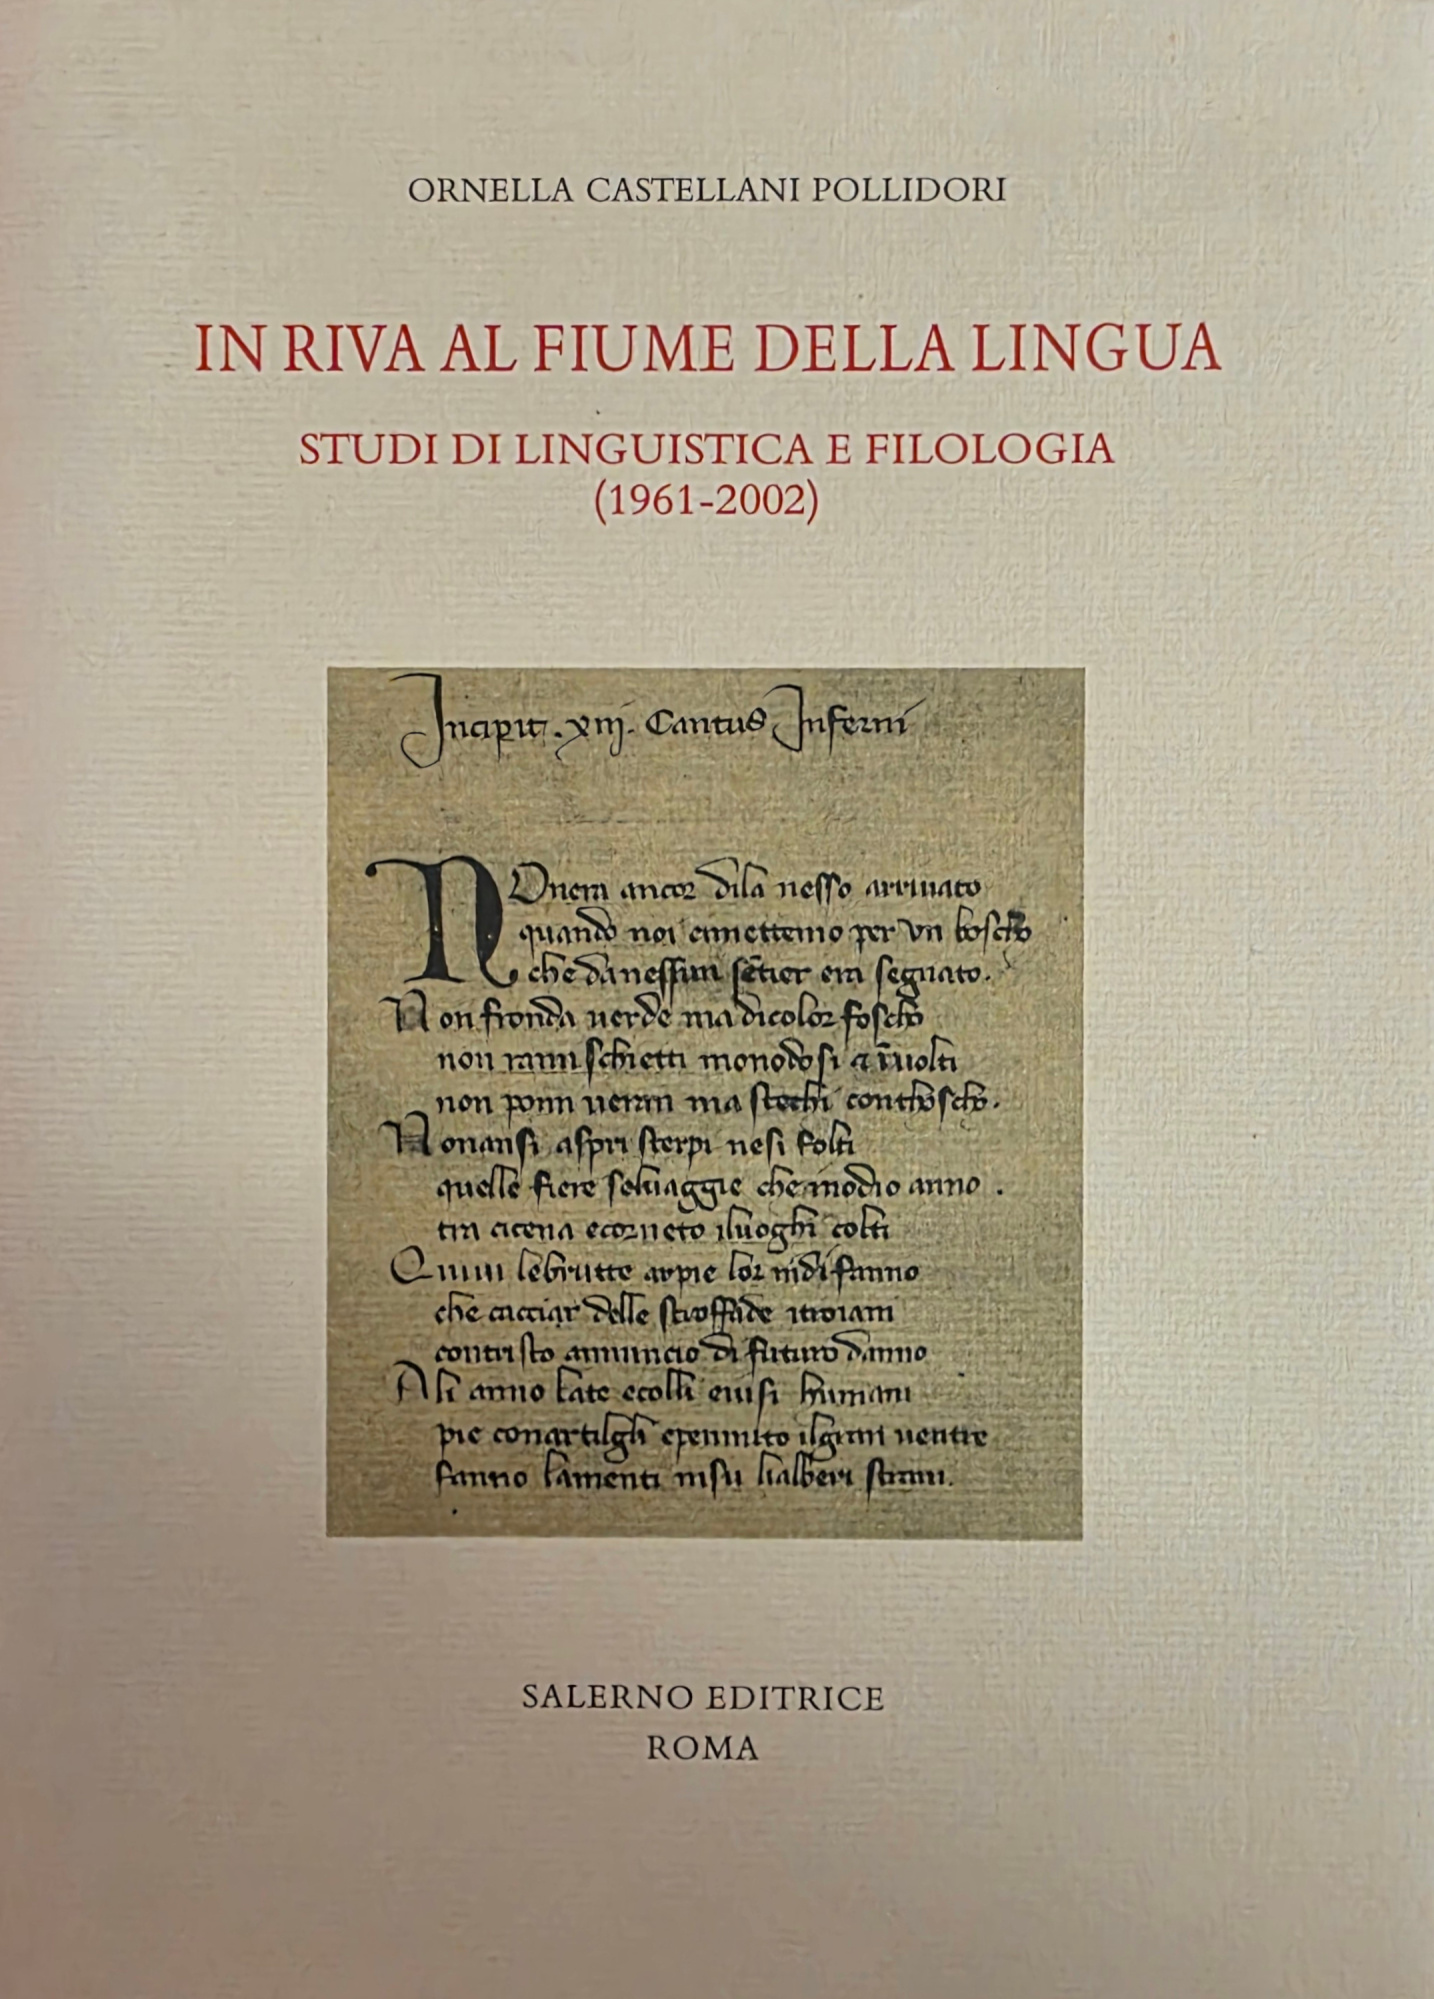 ORNELLA CASTELLANI POLLIDORI
IN RIVA AL FIUME DELLA LINGUA
STUDI DI LINGUISTICA E FILOLOGIA
(1961-2002)
Incipit .xiij. Cantus Inferni
NOnera ancor dila nesso arriuato
quando noi cimettemo per vn boscho
che danessun sētier era segnato.
Non fronda uerde ma dicolor foscho
non rami schietti ma nodosi
non pomi ueran ma stechi con thoscho.
Nonansi aspri sterpi nesi folti
quelle fiere seluaggie che inodio anno.
tra cicena ecorneto iluoghi colti
Quiui lebrutte arpie lor nidi fanno
che cacciar delle stroffade itroiani
contristo annuncio di futuro danno
Ali anno late ecolli euisi humani
pie conartilgli epennuto ilgran uentre
fanno lamenti insu lialberi strani.
SALERNO EDITRICE
ROMA